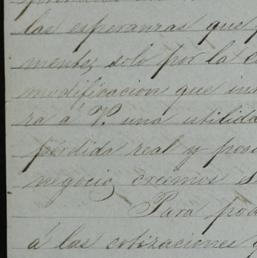 las esperanzas que
mente, solo por la
modificacion que
ra á V. una utilida
pérdida real y pos
negocio, creemos
Para pod
á las cotizaciones